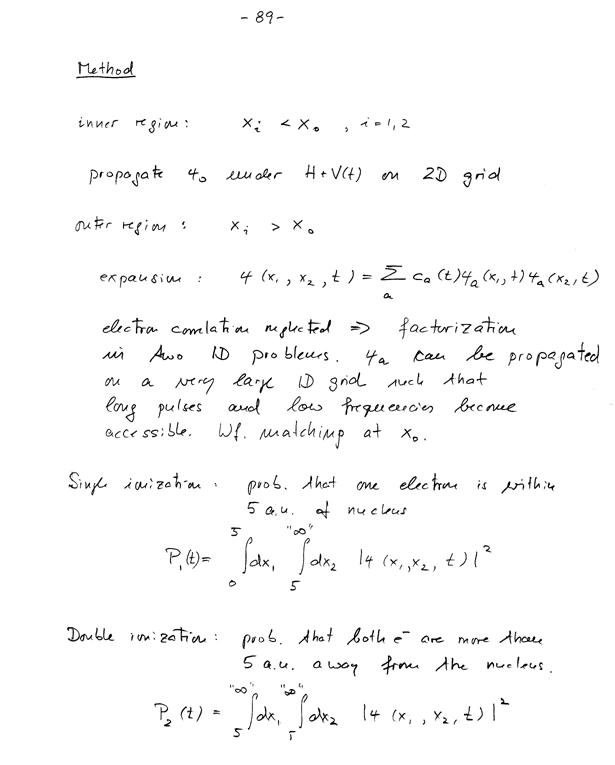 - 89 -
Method
inner region: x_i < x_0 , i = 1, 2
propagate ψ_0 under H+V(t) on 2D grid
outer region : x_i > x_0
expansion : ψ(x_1, x_2, t) = Σ_a c_a(t) ψ_a(x_1, t) ψ_a(x_2, t)
electron correlation neglected => factorization
in two 1D problems. ψ_a can be propagated
on a very large 1D grid such that
long pulses and low frequencies become
accessible. Wf. matching at x_0.
Single ionization : prob. that one electron is within
5 a.u. of nucleus
P_1(t) = ∫_0^5 dx_1 ∫_5^"∞" dx_2 |ψ(x_1, x_2, t)|^2
Double ionization : prob. that both e^- are more than
5 a.u. away from the nucleus.
P_2(t) = ∫_5^"∞" dx_1 ∫_5^"∞" dx_2 |ψ(x_1, x_2, t)|^2